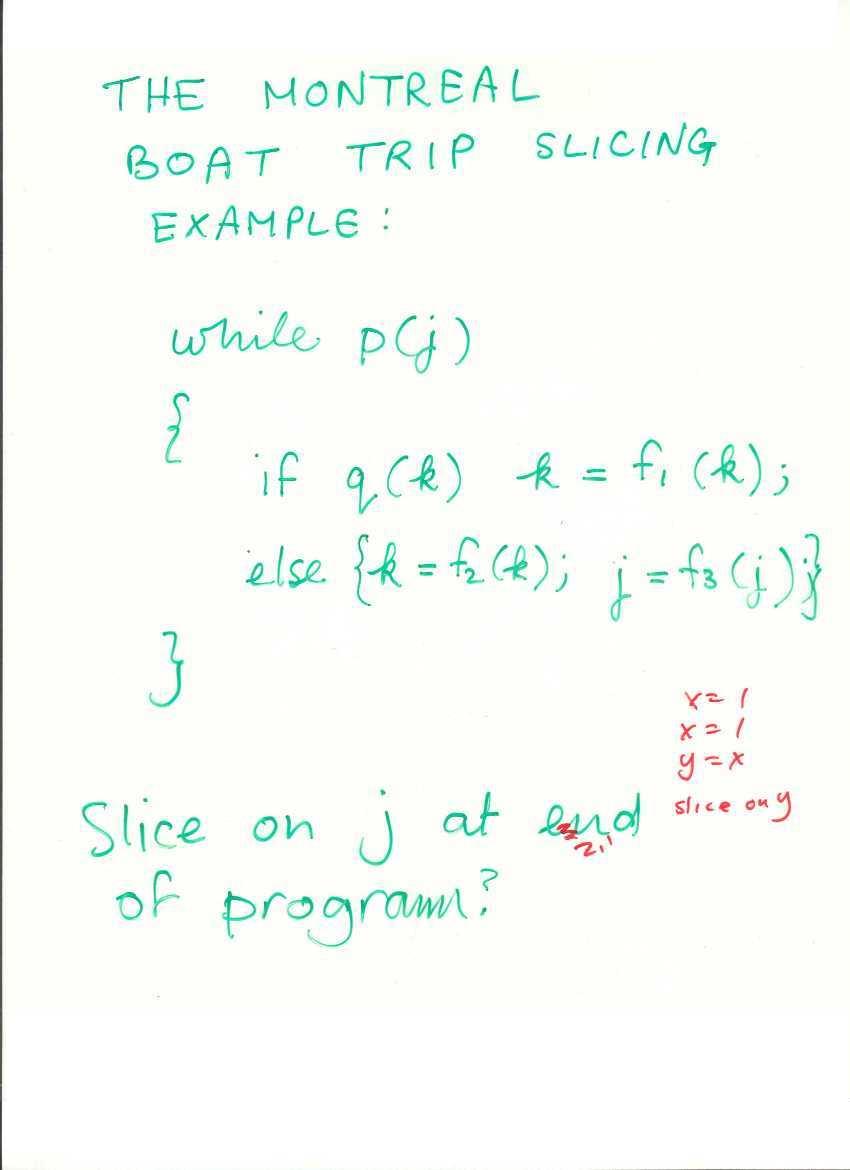 THE MONTREAL
BOAT TRIP SLICING
EXAMPLE:
while p(j)
{
if q(k) k = f₁(k);
else {k = f₂(k); j = f₃(j);}
}
x = 1
x = 1
y = x
slice on y
Slice on j at end
of program?